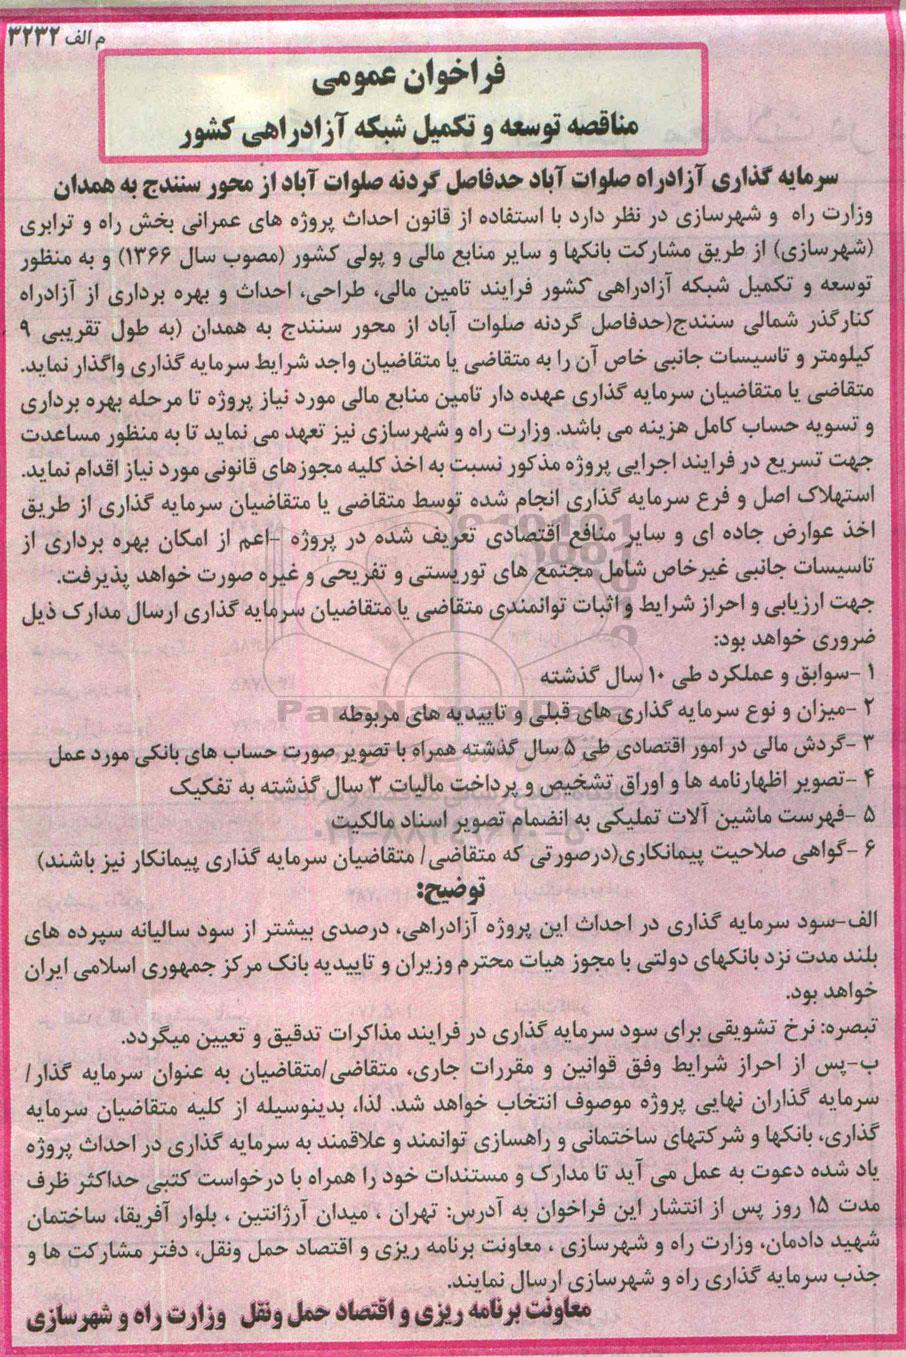 م الف ۳۲۳۲
فراخوان عمومی
مناقصه توسعه و تکمیل شبکه آزادراهی کشور
سرمایه گذاری آزادراه صلوات آباد حدفاصل گردنه صلوات آباد از محور سنندج به همدان
وزارت راه و شهرسازی در نظر دارد با استفاده از قانون احداث پروژه های عمرانی بخش راه و ترابری
(شهرسازی) از طریق مشارکت بانکها و سایر منابع مالی و پولی کشور (مصوب سال ۱۳۶۶) و به منظور
توسعه و تکمیل شبکه آزادراهی کشور فرایند تامین مالی، طراحی، احداث و بهره برداری از آزادراه
کنارگذر شمالی سنندج(حدفاصل گردنه صلوات آباد از محور سنندج به همدان (به طول تقریبی ۹
کیلومتر و تاسیسات جانبی خاص آن را به متقاضی یا متقاضیان واجد شرایط سرمایه گذاری واگذار نماید.
متقاضی یا متقاضیان سرمایه گذاری عهده دار تامین منابع مالی مورد نیاز پروژه تا مرحله بهره برداری
و تسویه حساب کامل هزینه می باشد. وزارت راه و شهرسازی نیز تعهد می نماید تا به منظور مساعدت
جهت تسریع در فرایند اجرایی پروژه مذکور نسبت به اخذ کلیه مجوزهای قانونی مورد نیاز اقدام نماید.
استهلاک اصل و فرع سرمایه گذاری انجام شده توسط متقاضی یا متقاضیان سرمایه گذاری از طریق
اخذ عوارض جاده ای و سایر منافع اقتصادی تعریف شده در پروژه –اعم از امکان بهره برداری از
تاسیسات جانبی غیرخاص شامل مجتمع های توریستی و تفریحی و غیره صورت خواهد پذیرفت.
جهت ارزیابی و احراز شرایط و اثبات توانمندی متقاضی یا متقاضیان سرمایه گذاری ارسال مدارک ذیل
ضروری خواهد بود:
۱ –سوابق و عملکرد طی ۱۰ سال گذشته
۲ –میزان و نوع سرمایه گذاری های قبلی و تاییدیه های مربوطه
ParsNamadData
۳ –گردش مالی در امور اقتصادی طی ۵ سال گذشته همراه با تصویر صورت حساب های بانکی مورد عمل
۴ –تصویر اظهارنامه ها و اوراق تشخیص و پرداخت مالیات ۳ سال گذشته به تفکیک
۵ –فهرست ماشین آلات تملیکی به انضمام تصویر اسناد مالکیت
۶ –گواهی صلاحیت پیمانکاری(درصورتی که متقاضی/ متقاضیان سرمایه گذاری پیمانکار نیز باشند)
توضیح:
الف–سود سرمایه گذاری در احداث این پروژه آزادراهی، درصدی بیشتر از سود سالیانه سپرده های
بلند مدت نزد بانکهای دولتی با مجوز هیات محترم وزیران و تاییدیه بانک مرکز جمهوری اسلامی ایران
خواهد بود.
تبصره: نرخ تشویقی برای سود سرمایه گذاری در فرایند مذاکرات تدقیق و تعیین میگردد.
ب–پس از احراز شرایط وفق قوانین و مقررات جاری، متقاضی/متقاضیان به عنوان سرمایه گذار/
سرمایه گذاران نهایی پروژه موصوف انتخاب خواهد شد. لذا، بدینوسیله از کلیه متقاضیان سرمایه
گذاری، بانکها و شرکتهای ساختمانی و راهسازی توانمند و علاقمند به سرمایه گذاری در احداث پروژه
یاد شده دعوت به عمل می آید تا مدارک و مستندات خود را همراه با درخواست کتبی حداکثر ظرف
مدت ۱۵ روز پس از انتشار این فراخوان به آدرس: تهران ، میدان آرژانتین ، بلوار آفریقا، ساختمان
شهید دادمان، وزارت راه و شهرسازی ، معاونت برنامه ریزی و اقتصاد حمل ونقل، دفتر مشارکت ها و
جذب سرمایه گذاری راه و شهرسازی ارسال نمایند.
معاونت برنامه ریزی و اقتصاد حمل ونقل وزارت راه و شهرسازی